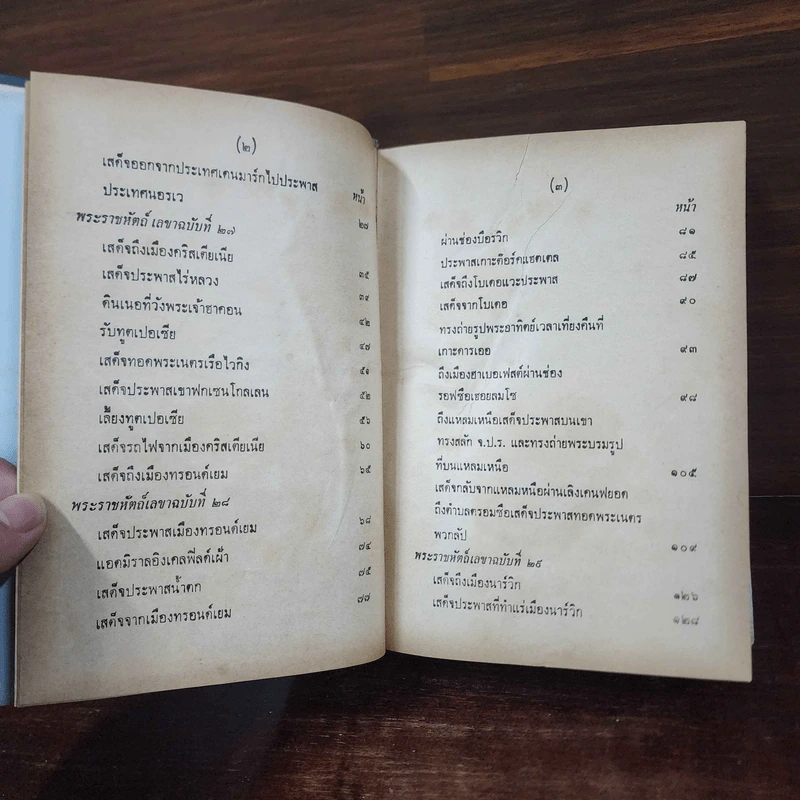 (๒)
เสด็จออกจากประเทศเดนมาร์กไปประพาส
ประเทศนอรเว
หน้า
พระราชหัตถ์เลขาฉบับที่ ๒๗ ๒๘
เสด็จถึงเมืองคริสเตียเนีย
เสด็จประพาสไร่หลวง ๓๕
ดินเนอที่วังพระเจ้าฮาคอน ๓๙
รับทูตเปอเซีย ๔๒
เสด็จทอดพระเนตรเรือไวกิง ๔๗
เสด็จประพาสเขาฟกเซนโกลเลน ๕๑
๕๒
เลี้ยงทูตเปอเซีย ๕๖
เสด็จรถไฟจากเมืองคริสเตียเนีย ๖๐
เสด็จถึงเมืองทรอนด์เยม ๖๕
พระราชหัตถ์เลขาฉบับที่ ๒๘
เสด็จประพาสเมืองทรอนด์เยม ๖๘
แอดมิราลอิงเคลฟีลด์เฝ้า ๗๔
เสด็จประพาสน้ำตก ๗๕
เสด็จจากเมืองทรอนด์เยม ๗๗
(๓)
หน้า
ผ่านช่องบือรวิก ๘๑
ประพาสเกาะติอร์คแฮตเตล ๘๕
เสด็จถึงโบเดอแวะประพาส ๘๗
เสด็จจากโบเดอ ๙๐
ทรงถ่ายรูปพระอาทิตย์เวลาเที่ยงคืนที่
เกาะคารเออ ๙๓
ถึงเมืองฮาเบอเฟสต์ผ่านช่อง
รอฟซือเฮอยลมโซ ๙๘
ถึงแหลมเหนือเสด็จประพาสบนเขา
ทรงสลัก จ.ป.ร. และทรงถ่ายพระบรมรูป
ที่บนแหลมเหนือ ๑๐๕
เสด็จกลับจากแหลมเหนือผ่านเลิงเคนฟยอด
ถึงตำบลครอมซือเสด็จประพาสทอดพระเนตร
พวกลัป ๑๐๙
พระราชหัตถ์เลขาฉบับที่ ๒๙
เสด็จถึงเมืองนาร์วิก ๑๒๖
เสด็จประพาสที่ทำแร่เมืองนาร์วิก ๑๒๘